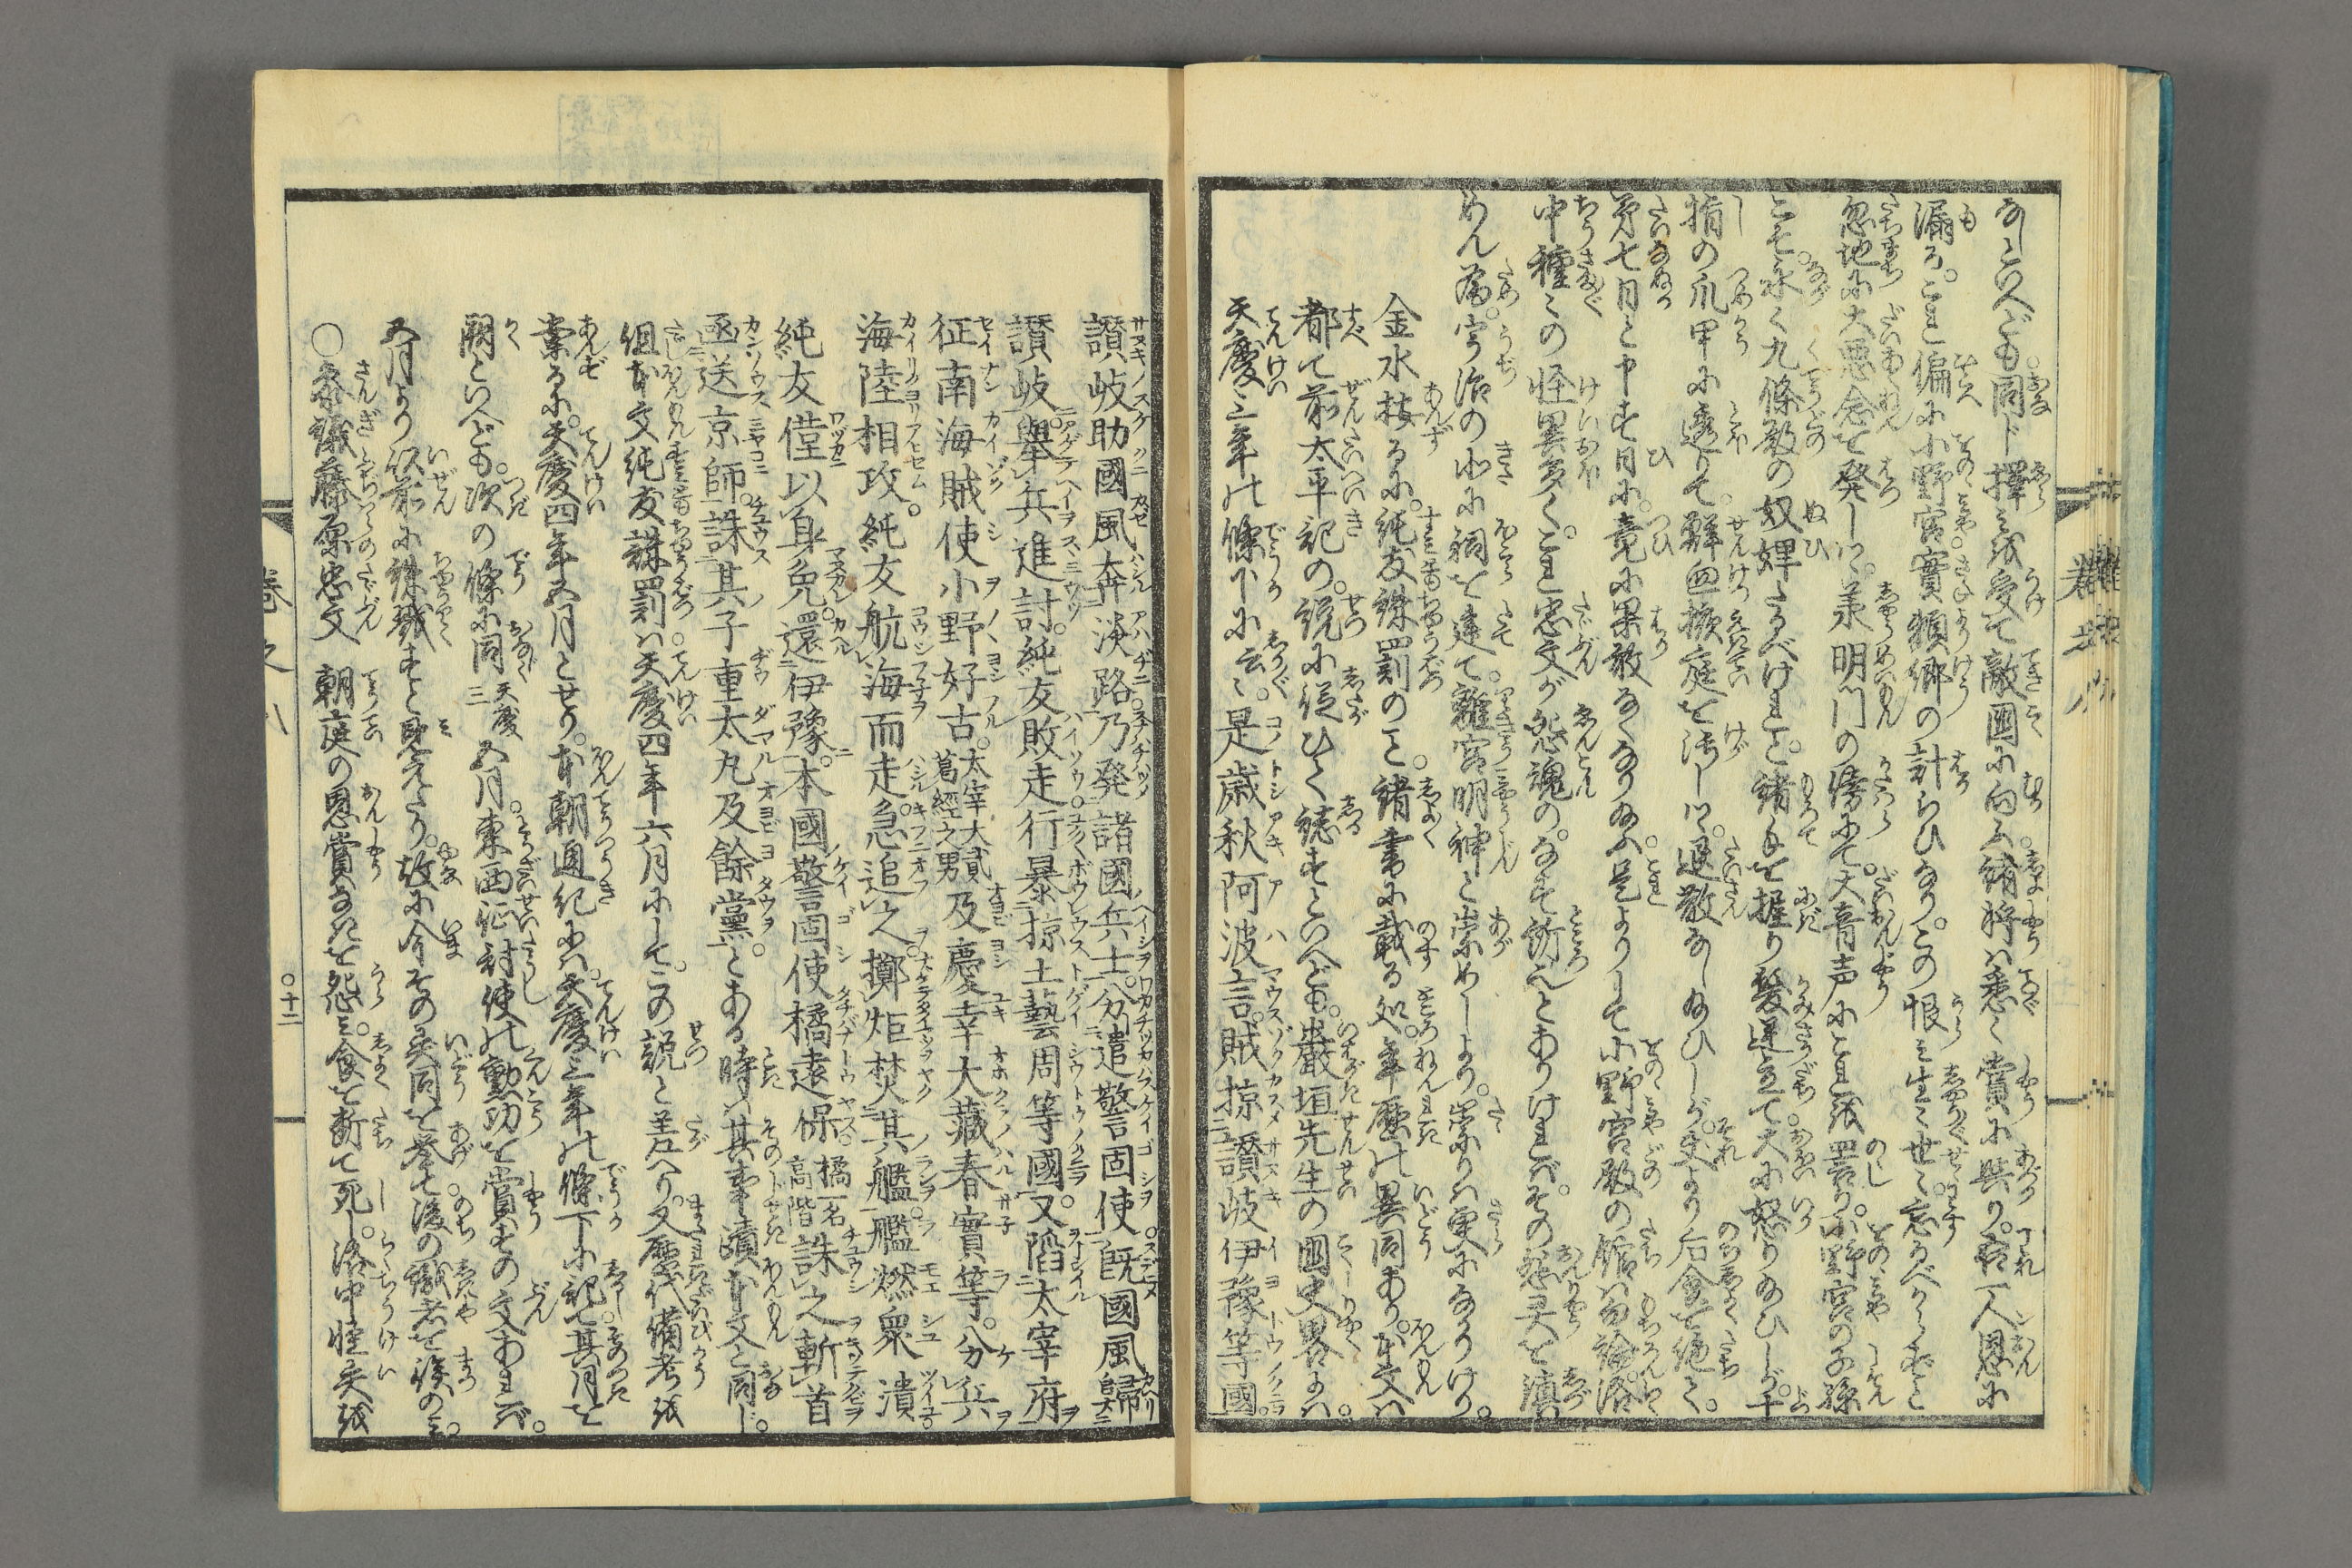 なしといへども。同じ擇みを受て敵國に向ふ。諸將は悉く賞に與り。我一人恩に
漏る。これ偏に小野宮實頼卿の計らひなり。この恨み生々世々忘るべからずと
忽地に大悪念を発しつ。承明門の傍にて。大音声にこれを罵り。小野宮の子孫
をして永く九條殿の奴婢たるべけれと。諸手を握り髮逆立て大に怒り給ひしが。十
指の爪甲に透りて。鮮血掖庭を汚しつ。退散なし給ひしが。夫より后食を絶て。
第七日と申す日に。竟に果敢なくなり給ふ。是よりして小野宮殿の舘は勿論洛
中種々の怪異多く。これ忠文が怨魂の。なす所也とありければ。その怨灵を鎮
めん為。宇治の北に祠を建て。離宮明神と崇めしより。祟りは更になかりけり。
金水按るに。純友誅罰のこと。諸書に載る処。年歴の異同あり。本文は
都て前太平記の。説に從ひて誌すといへども。巖垣先生の國史畧には。
天慶三年の條下に云々。是歳秋阿波言。賊掠讃岐伊豫等國。
讃岐助國風奔淡路。乃発諸國兵士。分遣警固使。既國風歸
讃岐。舉兵進討。純友敗走行暴掠土藝周等國。又陷太宰府
征南海賊使小野好古。太宰大貳葛經之男及慶幸大藏春實等。分兵
海陸相攻。純友航海而走。急追之擲炬焚其艦。艦燃衆潰
純友僅以身免。還伊豫。本國警固使橘遠保橘一名高階誅之斬首
函送京師。誅其子重太丸及餘黨。とある時は其事蹟本文と同じ。
但本文純友誅罰は天慶四年六月にして。この説と差へり。又歴代備考を
案るに。天慶四年五月とせり。本朝通紀には。天慶三年の條下に記て其月を
闕といへども。次の條に同天慶三五月。東西征討使の勲功を賞すの文あれば。
五月より以前に誅戮すと見えたり。故に今その異同を挙て後の識者を俟のみ。
○参議藤原忠文　朝庭の恩賞なきを怨み。食を断て死し。洛中怪異を
巻之八
○十二